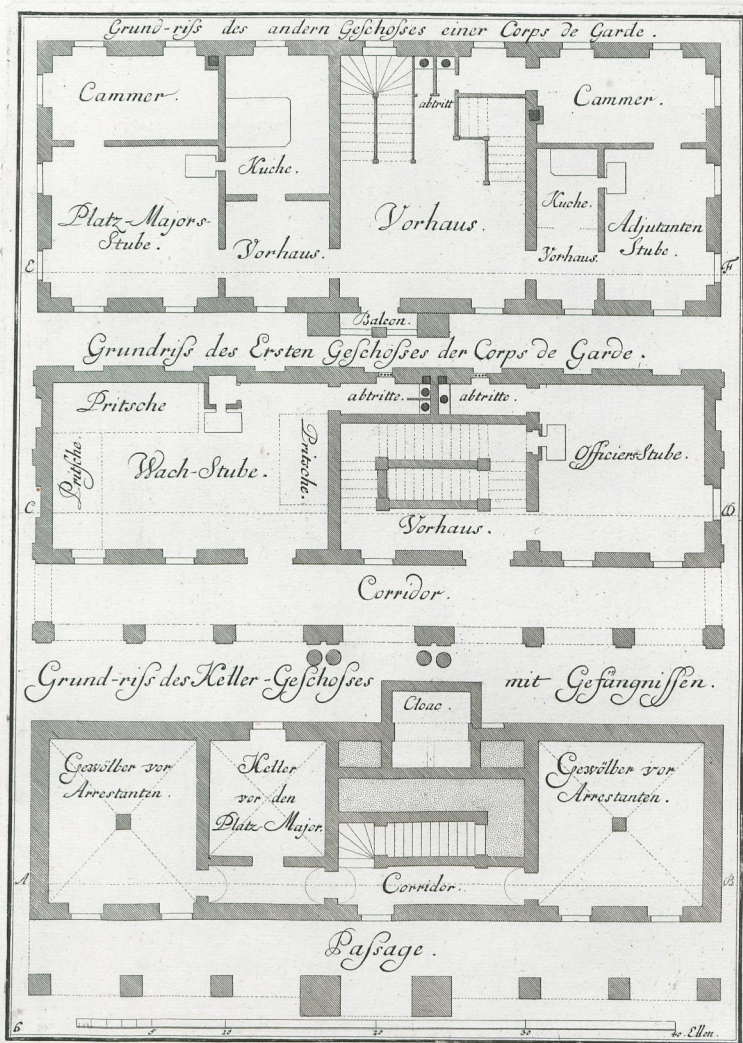 Grund-riſs des andern Geſchoſses einer Corps de Garde.
Cammer.
abtritt
Cammer.
Kuche.
Kuche.
Platz-Majors-
Stube.
Vorhaus.
Vorhaus.
Vorhaus.
Adjutanten
Stube.
E
F
Balcon.
Grundriſs des Ersten Geſchoſses der Corps de Garde.
Pritsche
abtritte.
abtritte.
Pritsche.
Wach-Stube.
Pritsche.
Officiers-Stube.
C
D
Vorhaus.
Corridor.
Grund-riſs des Keller-Geſchoſses mit Gefängniſſen.
Cloac.
Gewölber vor
Arrestanten.
Keller
vor den
Platz-Major.
Gewölber vor
Arrestanten.
A
B
Corridor.
Paſsage.
6
5 10 20 30 40. Ellen.